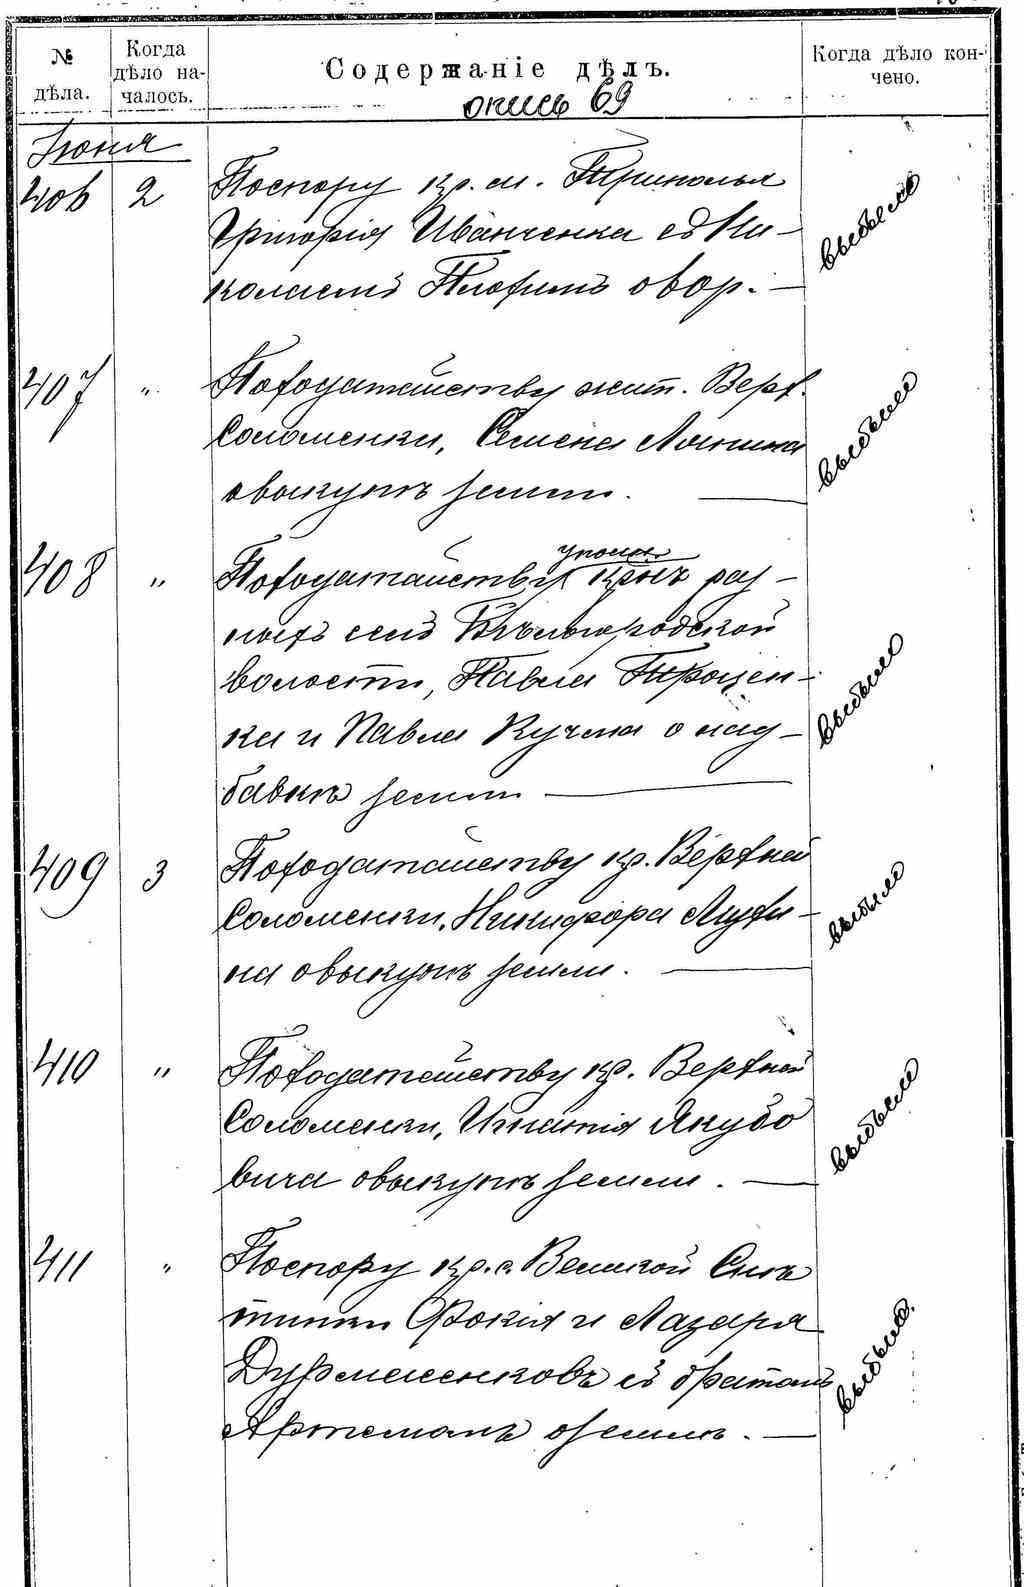 № дѣла.
Когда дѣло на-
чалось.
Содержаніе дѣлъ.
Когда дѣло кон-
чено.
опись 69
Іюня
406 2 По спору кр. м. Триполья
Григорія Иванченка съ Ни-
колаемъ о двор. —
выбыло
407 " По ходатайству жит. Верх.
Соломенки, Семена
о выкупѣ земли. —
выбыло
408 " По ходатайству уполн. кр-нъ раз-
ныхъ селъ Бѣлгородской
волости, Павла Троцен-
ка и Павла Кучма о над-
бавкѣ земли —
выбыло
409 3 По ходатайству кр. Верхней
Соломенки, Никифора
на о выкупѣ земли. —
выбыло
410 " По ходатайству кр. Верхней
Соломенки, Игнатія Якубо
вича о выкупѣ земли. —
выбыло
411 " По спору кр. с. Великой Снѣ
тинки Фокія и Лазаря
съ братомъ
Артемомъ о землѣ. —
выбыло